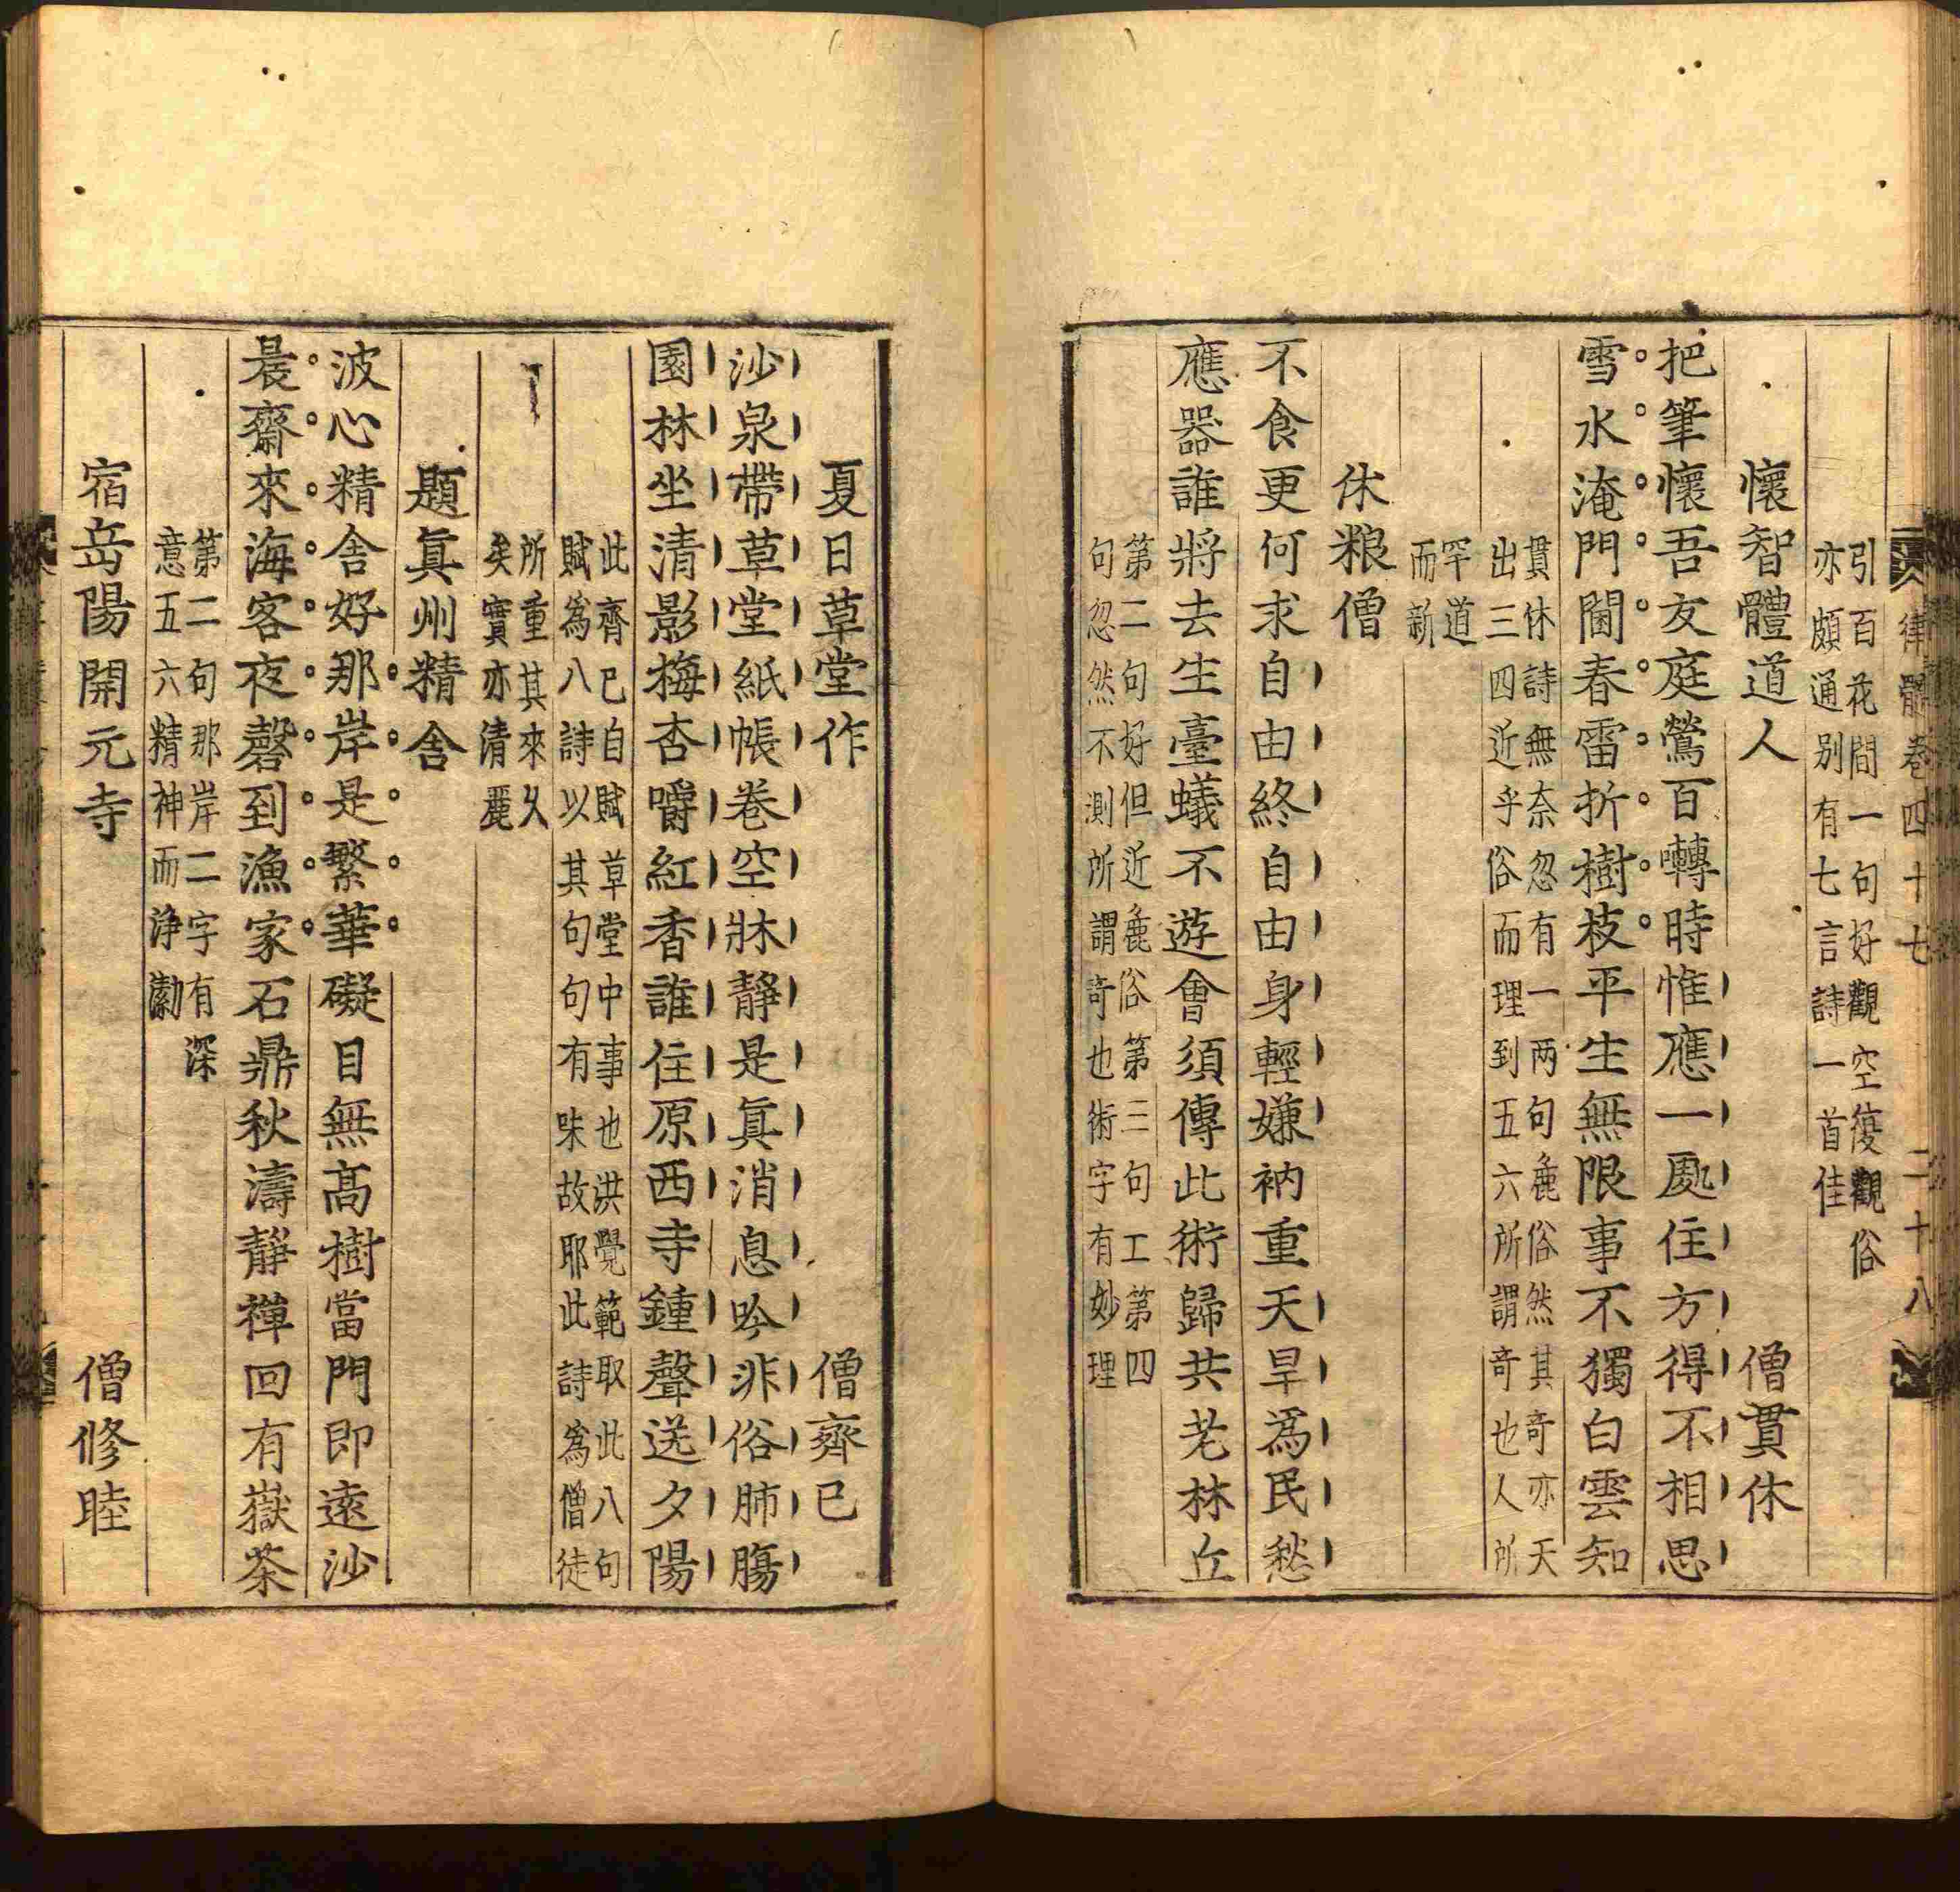 律髓卷四十七 二十八
引百花間一句好觀空復觀俗
亦頗通别有七言詩一首佳
懷智體道人 僧貫休
把筆懷吾友庭鶯百囀時惟應一處住方得不相思
雪水淹門閫春雷折樹枝平生無限事不獨白雲知
貫休詩無奈忽有一两句麁俗然其奇亦天
出三四近乎俗而理到五六所謂奇也人所
罕道
而新
休粮僧
不食更何求自由終自由身輕嫌衲重天旱爲民愁
應器誰將去生臺蟻不遊會須傳此術歸共老林丘
第二句好但近麁俗第三句工第四
句忽然不測所謂奇也術字有妙理
夏日草堂作 僧齊已
沙泉帶草堂紙帳卷空牀靜是眞消息吟非俗肺膓
園林坐清影梅杏嚼紅香誰住原西寺鍾聲送夕陽
此齊已自賦草堂中事也洪覺範取此八句
賦為八詩以其句句有味故耶此詩為僧徒
所重其來乆
矣實亦清麗
題眞州精舍
波心精舍好那岸是繁華礙目無髙樹當門即遠沙
晨齋來海客夜磬到漁家石鼎秋濤靜禪回有嶽茶
第二句那岸二字有深
意五六精神而浄㓗
宿岳陽開元寺 僧修睦